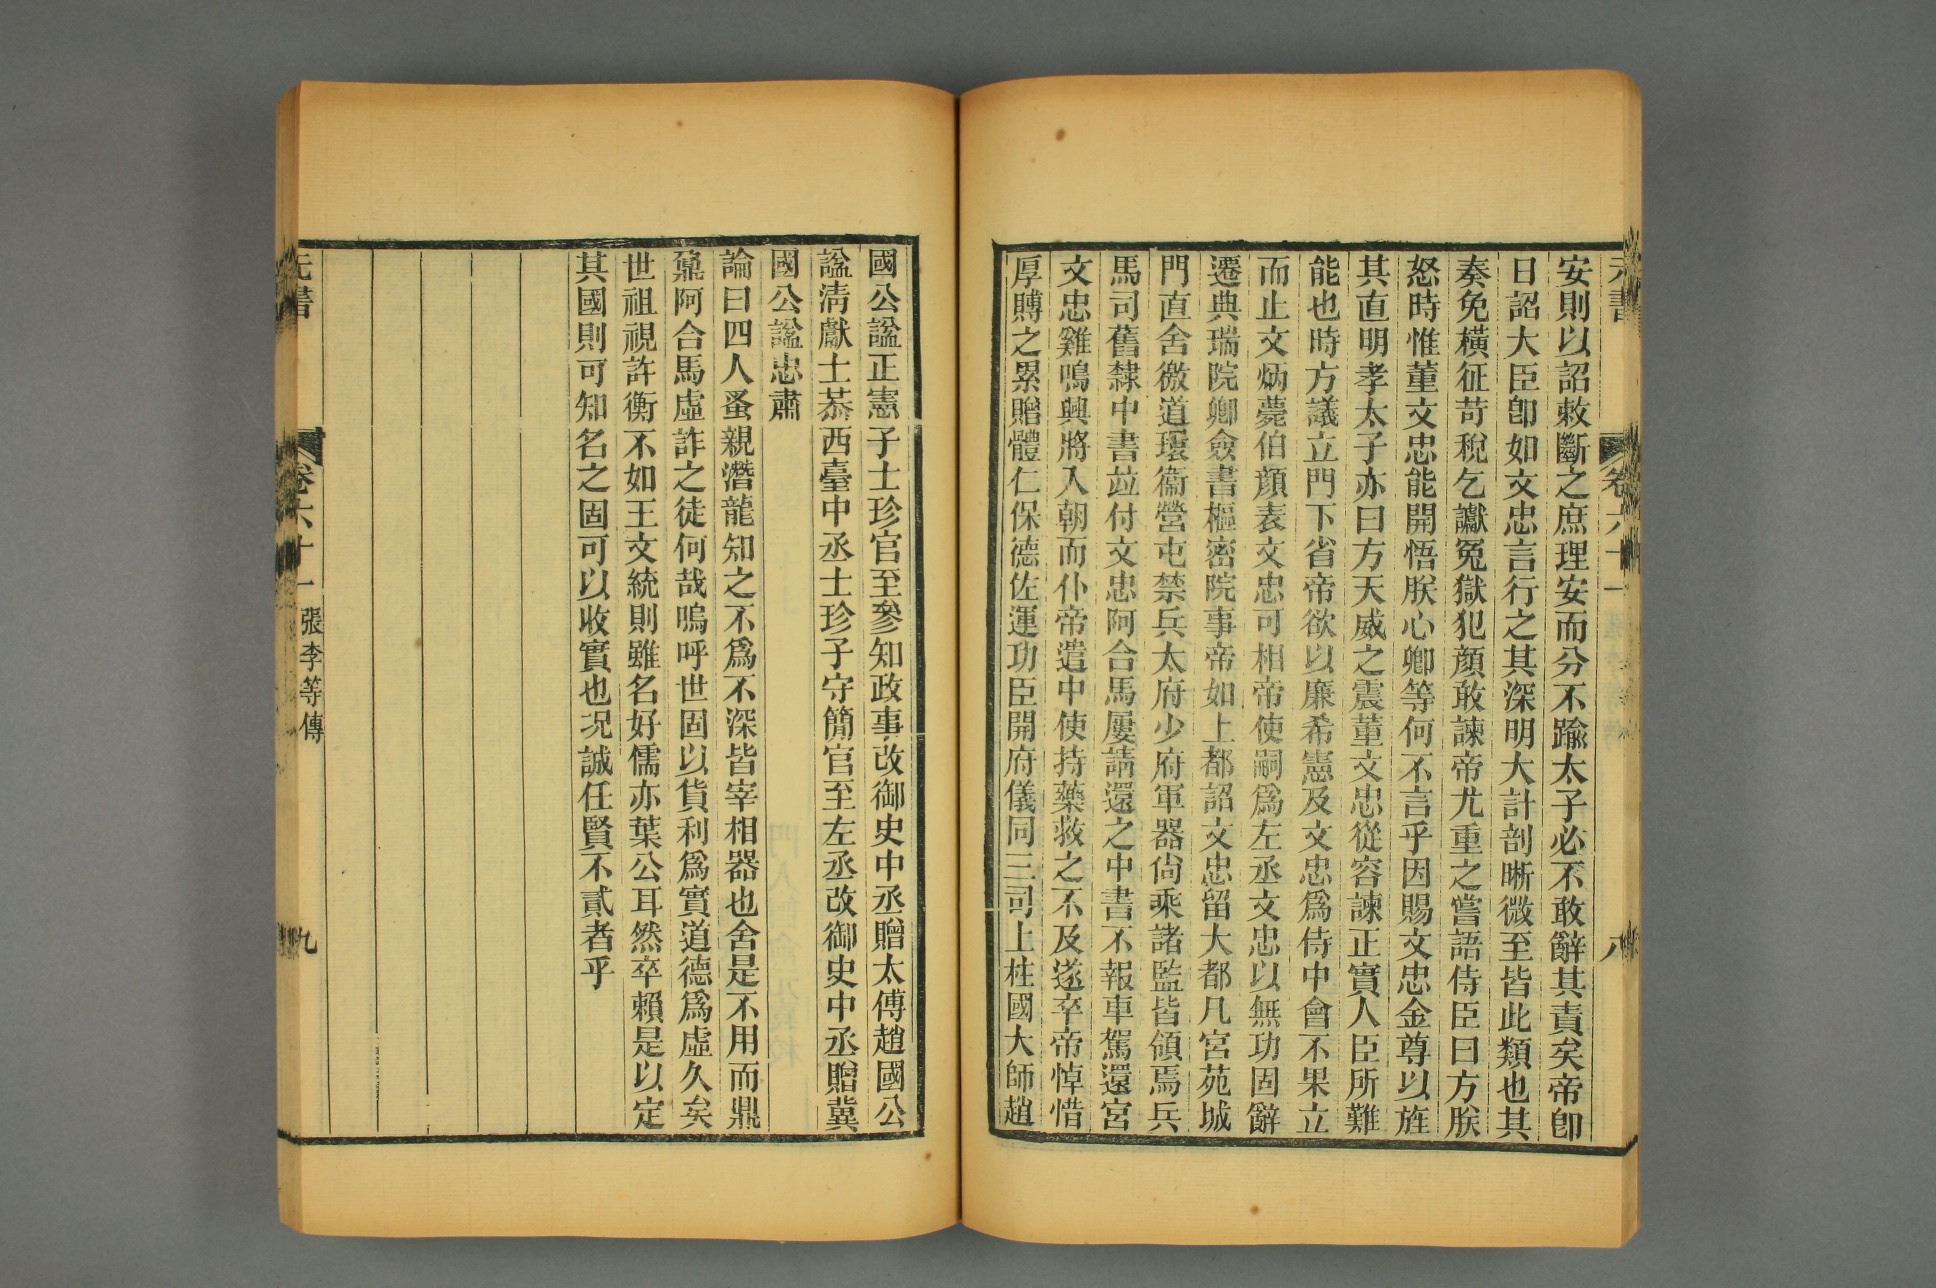 元書
卷六十一
八
安則以詔敕斷之庶理安而分不踰太子必不敢辭其責矣帝卽
日詔大臣卽如文忠言行之其深明大計剖晰微至皆此類也其
奏免橫征苛稅乞讞冤獄犯顏敢諫帝尤重之嘗語侍臣曰方朕
怒時惟董文忠能開悟朕心卿等何不言乎因賜文忠金尊以旌
其直明孝太子亦曰方天威之震董文忠從容諫正實人臣所難
能也時方議立門下省帝欲以廉希憲及文忠爲侍中會不果立
而止文炳薨伯顏表文忠可相帝使嗣爲左丞文忠以無功固辭
遷典瑞院卿僉書樞密院事帝如上都詔文忠留大都凡宮苑城
門直舍徼道環衞營屯禁兵太府少府軍器尙乘諸監皆領焉兵
馬司舊隸中書竝付文忠阿合馬屢請還之中書不報車駕還宮
文忠雞鳴興將入朝而仆帝遣中使持藥救之不及遂卒帝悼惜
厚賻之累贈體仁保德佐運功臣開府儀同三司上柱國大師趙
國公諡正憲子士珍官至參知政事改御史中丞贈太傅趙國公
諡淸獻士恭西臺中丞士珍子守簡官至左丞改御史中丞贈冀
國公諡忠肅
論曰四人蚤親潛龍知之不爲不深皆宰相器也舍是不用而鼎
鼐阿合馬虛詐之徒何哉嗚呼世固以貨利爲實道德爲虛久矣
世祖視許衡不如王文統則雖名好儒亦葉公耳然卒賴是以定
其國則可知名之固可以收實也況誠任賢不貳者乎
元書
卷六十一
張李等傳
九